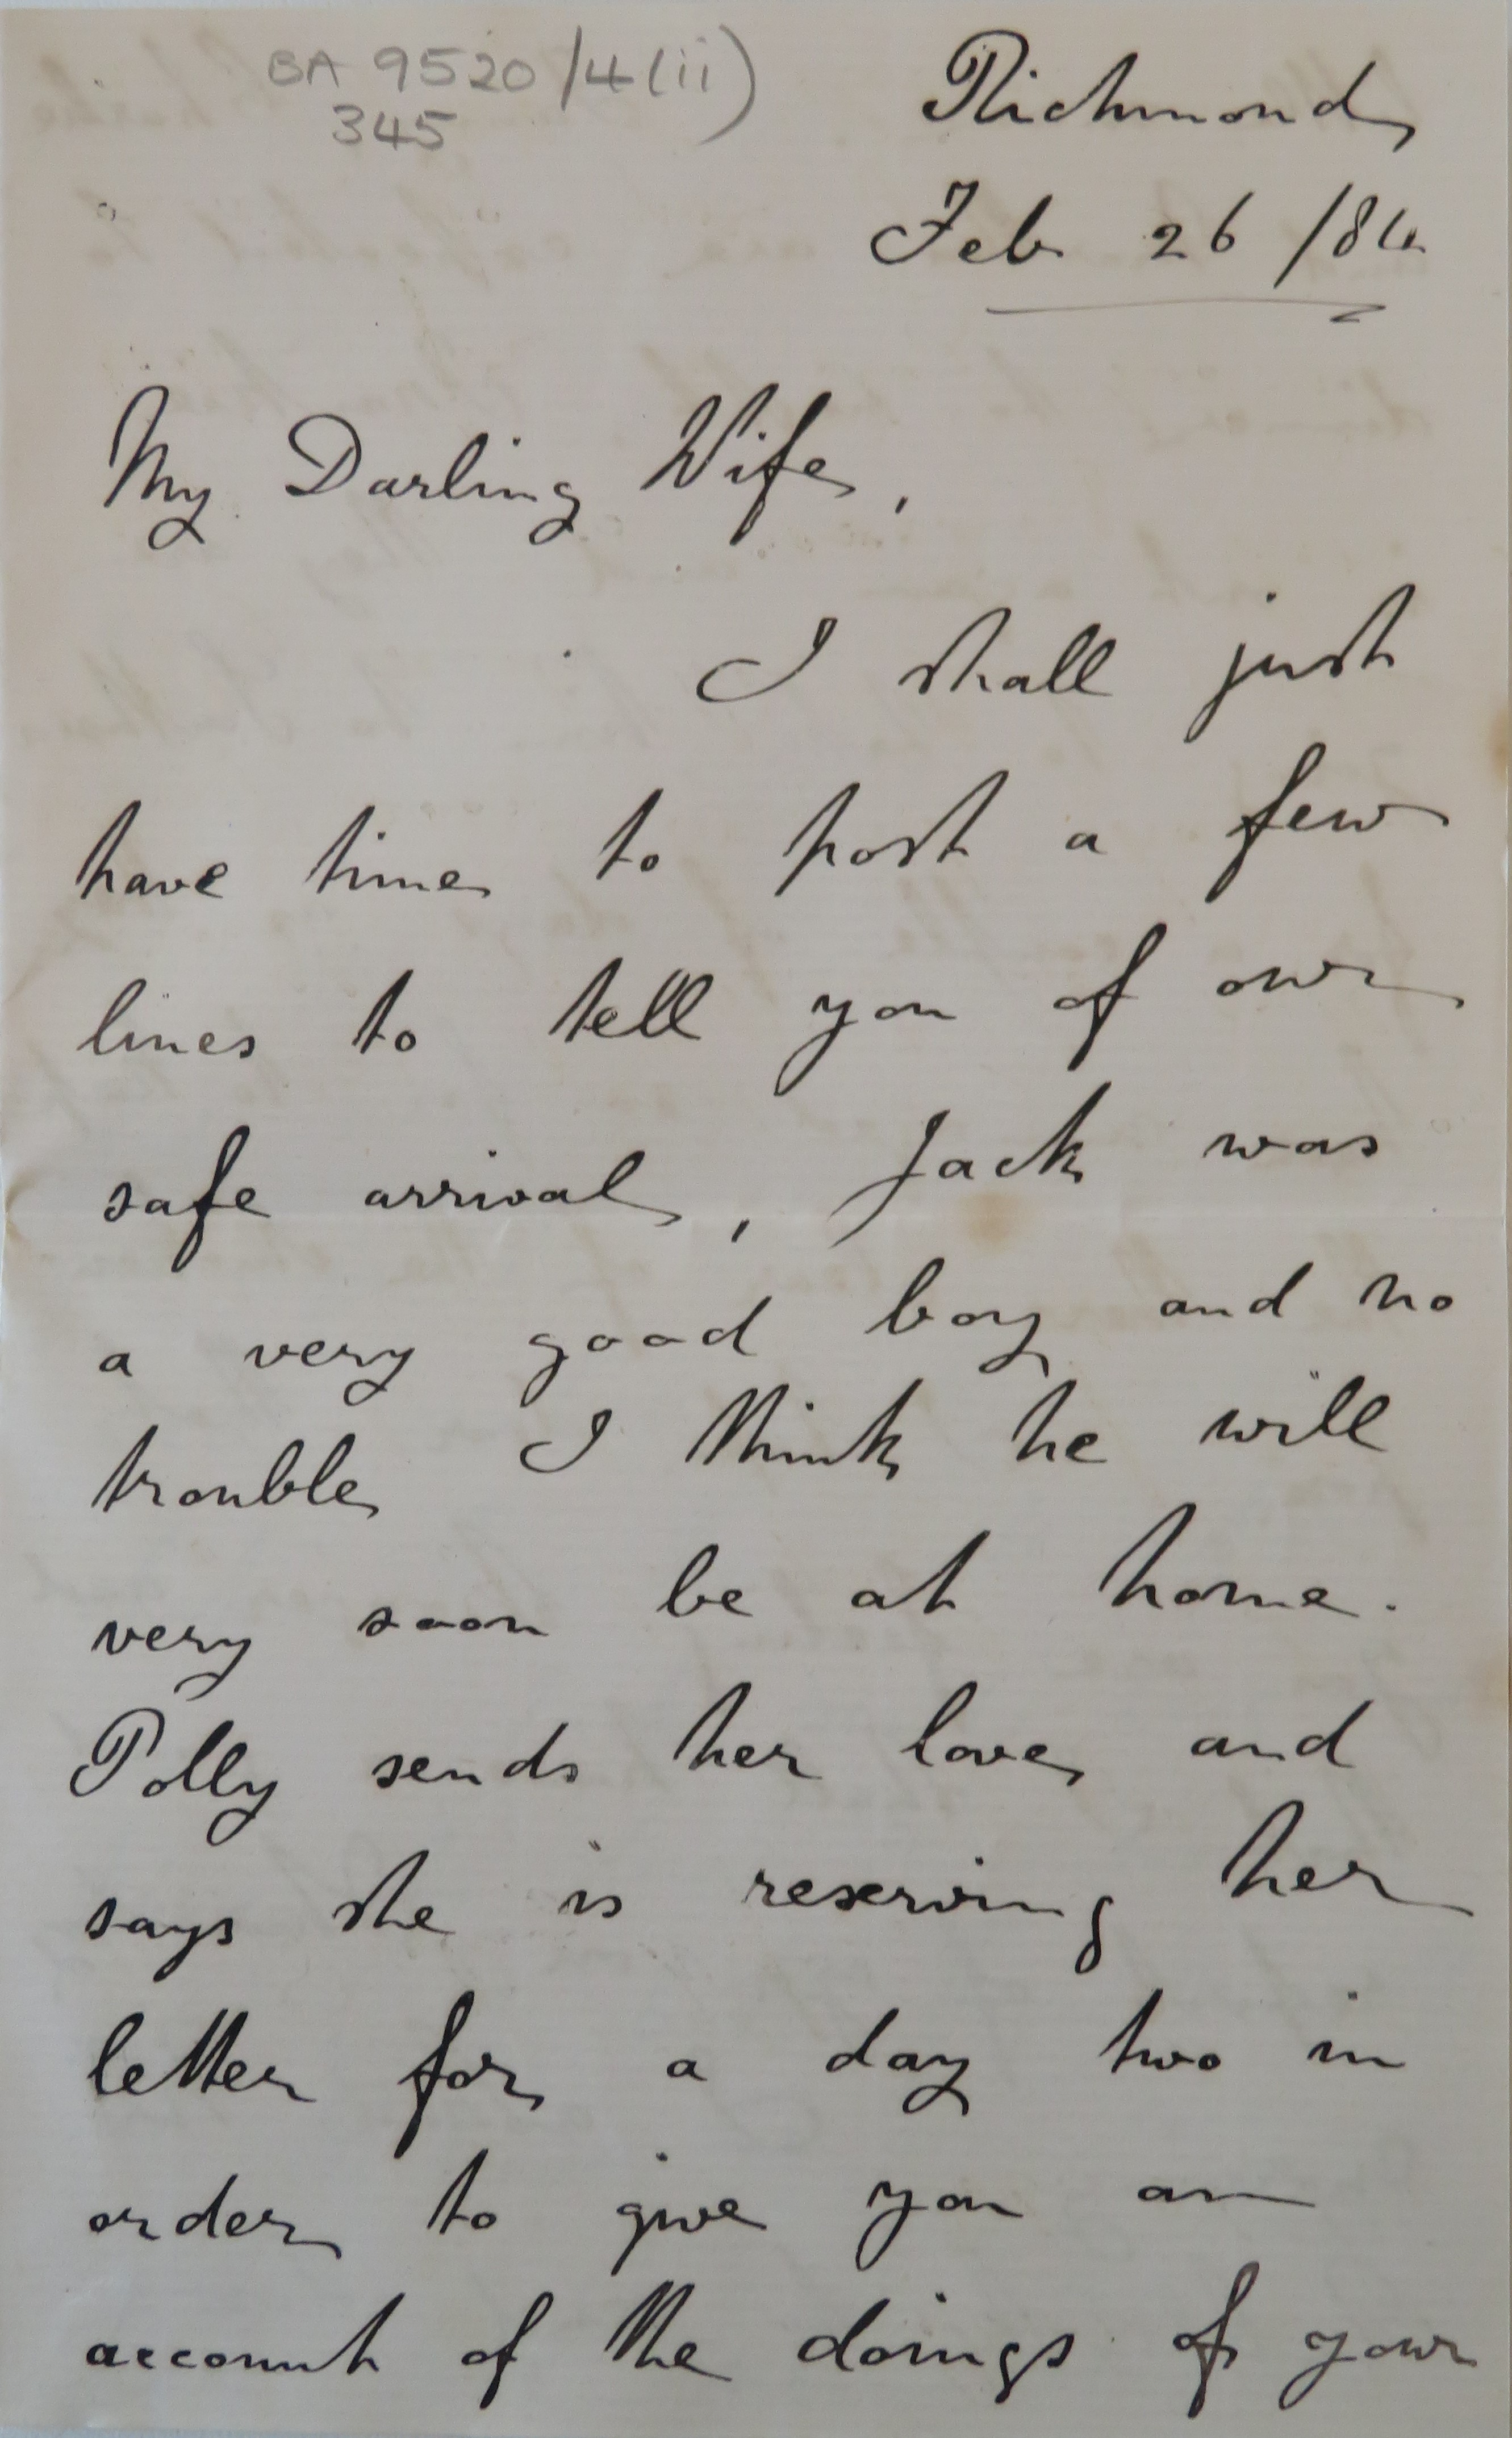 BA 9520/4(ii)
345
Richmond
Feb 26 /84
My Darling Wife,
I shall just
have time to post a few
lines to tell you of our
safe arrival, Jack was
a very good boy and no
trouble I think he will
very soon be at home.
Polly sends her love and
says she is reserving her
letter for a day two in
order to give you an
account of the doings of your